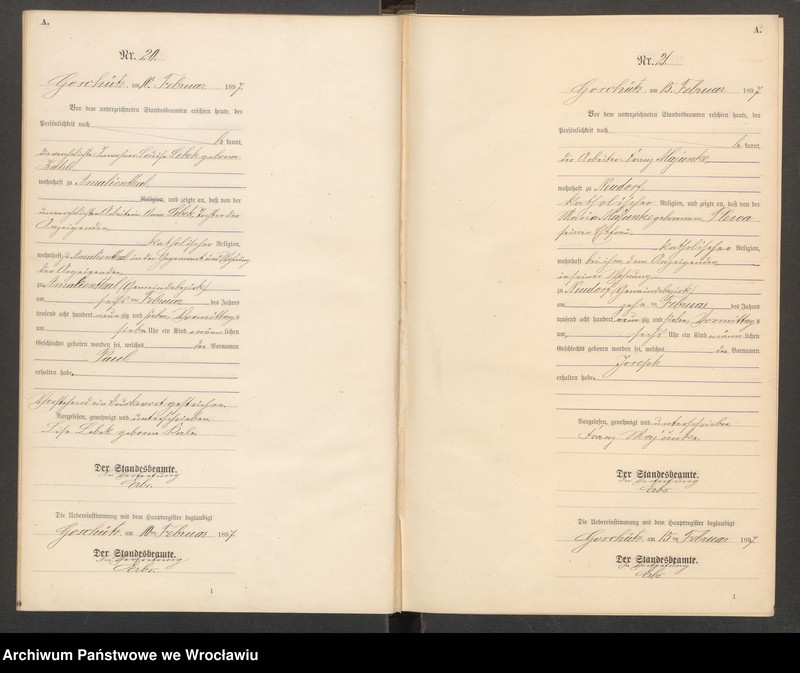 A.
Nr. 20.
Goschütz, am 10. Februar 1897.
Vor dem unterzeichneten Standesbeamten erschien heute, der
Persönlichkeit nach
be kannt,
die verehelichte Inwohner Louise Lebek geborene
Kahle
wohnhaft zu Amalienthal
Religion, und zeigte an, daß von der
unverehelichten Arbeiterin Anna Lebek, Tochter der
Anzeigenden
katholischer Religion,
wohnhaft zu Amalienthal in der Gegenwart und Wohnung
der Anzeigenden
zu Amalienthal (Gemeindebezirk)
am sechs ten Februar des Jahres
tausend acht hundert neunzig und sieben, Vormittags
um sieben Uhr ein Kind männ lichen
Geschlechts geboren worden sei, welches den Vornamen
Paul
erhalten habe.
Vorstehend ein Druckwort gestrichen.
Vorgelesen, genehmigt und unterschrieben
Lebek geborene
Der Standesbeamte.
In Vertretung
Die Uebereinstimmung mit dem Hauptregister beglaubigt
Goschütz, am 10ten Februar 1897
Der Standesbeamte.
In Vertretung
1
A.
Nr. 21.
Goschütz, am 15. Februar 1897.
Vor dem unterzeichneten Standesbeamten erschien heute, der
Persönlichkeit nach
be kannt,
der Arbeiter Franz Majunke,
wohnhaft zu Neudorf,
katholischer Religion, und zeigte an, daß von der
Maria Majunke geborenen
seiner Ehefrau,
katholischer Religion,
wohnhaft bei ihm, dem Anzeigenden,
in seiner Wohnung
zu Neudorf (Gemeindebezirk)
am zehn ten Februar des Jahres
tausend acht hundert neunzig und sieben, Vormittags
um sechs Uhr ein Kind männ lichen
Geschlechts geboren worden sei, welches den Vornamen
Joseph
erhalten habe.
Vorgelesen, genehmigt und unterschrieben
Franz Majunke.
Der Standesbeamte.
In Vertretung
Die Uebereinstimmung mit dem Hauptregister beglaubigt
Goschütz, am 15ten Februar 1897.
Der Standesbeamte.
In Vertretung
1
Archiwum Państwowe we Wrocławiu